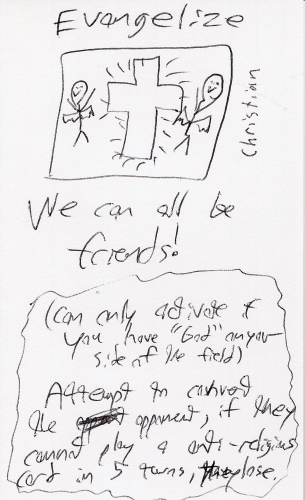 Evangelize
Christian
We can all be
friends!
(can only activate if
you have "God" on your
side of the field)
Attempt to convert
the opponent, if they
cannot play a anti-religious
card in 5 turns, they lose.